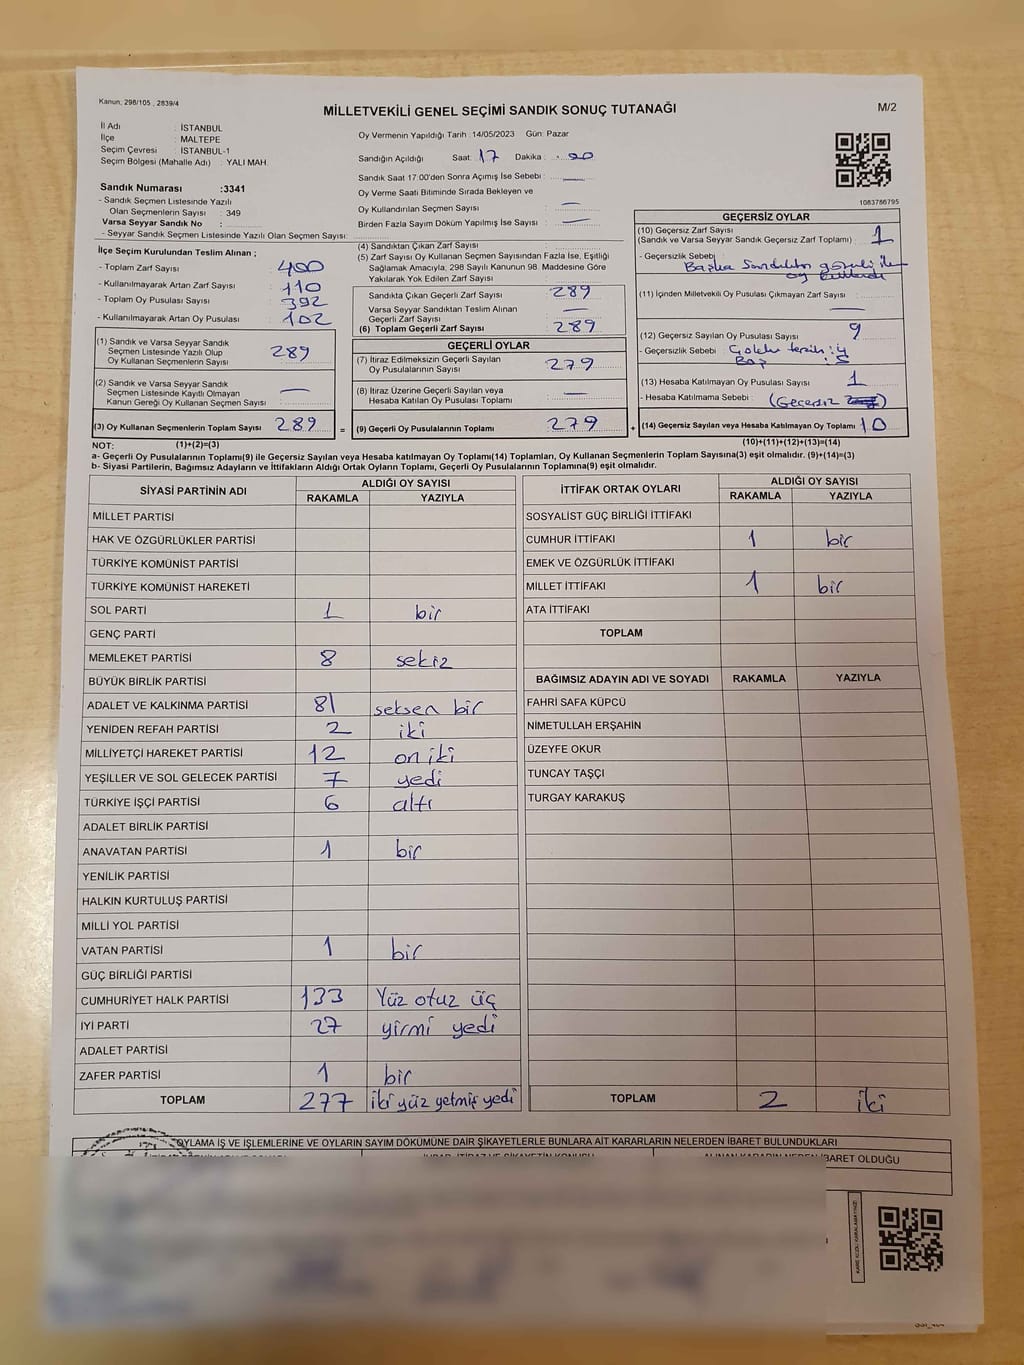 Kanun, 298/105 , 2839/4
MİLLETVEKİLİ GENEL SEÇİMİ SANDIK SONUÇ TUTANAĞI
M/2
İl Adı : İSTANBUL
İlçe : MALTEPE
Seçim Çevresi : İSTANBUL-1
Seçim Bölgesi (Mahalle Adı) : YALI MAH.
Sandık Numarası :3341
- Sandık Seçmen Listesinde Yazılı
Olan Seçmenlerin Sayısı : 349
Varsa Seyyar Sandık No :
- Seyyar Sandık Seçmen Listesinde Yazılı Olan Seçmen Sayısı:
Oy Vermenin Yapıldığı Tarih :14/05/2023 Gün: Pazar
Sandığın Açıldığı Saat: 17 Dakika :
Sandık Saat 17:00'den Sonra Açımış İse Sebebi : —
Oy Verme Saati Bitiminde Sırada Bekleyen ve
Oy Kullandırılan Seçmen Sayısı : —
Birden Fazla Sayım Döküm Yapılmış İse Sayısı : —
1083786795
İlçe Seçim Kurulundan Teslim Alınan ;
- Toplam Zarf Sayısı : 400
- Kullanılmayarak Artan Zarf Sayısı : 110
- Toplam Oy Pusulası Sayısı : 392
- Kullanılmayarak Artan Oy Pusulası : 102
(1) Sandık ve Varsa Seyyar Sandık
Seçmen Listesinde Yazılı Olup
Oy Kullanan Seçmenlerin Sayısı : 289
(2) Sandık ve Varsa Seyyar Sandık
Seçmen Listesinde Kayıtlı Olmayan
Kanun Gereği Oy Kullanan Seçmen Sayısı : —
(3) Oy Kullanan Seçmenlerin Toplam Sayısı : 289
(4) Sandıktan Çıkan Zarf Sayısı :
(5) Zarf Sayısı Oy Kullanan Seçmen Sayısından Fazla İse, Eşitliği
Sağlamak Amacıyla, 298 Sayılı Kanunun 98. Maddesine Göre
Yakılarak Yok Edilen Zarf Sayısı :
Sandıkta Çıkan Geçerli Zarf Sayısı : 289
Varsa Seyyar Sandıktan Teslim Alınan
Geçerli Zarf Sayısı : —
(6) Toplam Geçerli Zarf Sayısı : 289
GEÇERLİ OYLAR
(7) İtiraz Edilmeksizin Geçerli Sayılan
Oy Pusulalarının Sayısı : 279
(8) İtiraz Üzerine Geçerli Sayılan veya
Hesaba Katılan Oy Pusulası Toplamı : —
= (9) Geçerli Oy Pusulalarının Toplamı : 279
GEÇERSİZ OYLAR
(10) Geçersiz Zarf Sayısı
(Sandık ve Varsa Seyyar Sandık Geçersiz Zarf Toplamı) : 1
- Geçersizlik Sebebi :
Başka Sandıktan görevli ile
oy
(11) İçinden Milletvekili Oy Pusulası Çıkmayan Zarf Sayısı : —
(12) Geçersiz Sayılan Oy Pusulası Sayısı : 9
- Geçersizlik Sebebi : Çoklu tercih : 4
Boş : 5
(13) Hesaba Katılmayan Oy Pusulası Sayısı : 1
- Hesaba Katılmama Sebebi : (Geçersiz )
+ (14) Geçersiz Sayılan veya Hesaba Katılmayan Oy Toplamı : 10
NOT: (1)+(2)=(3)
(10)+(11)+(12)+(13)=(14)
a- Geçerli Oy Pusulalarının Toplamı(9) ile Geçersiz Sayılan veya Hesaba Katılmayan Oy Toplamı(14) Toplamları, Oy Kullanan Seçmenlerin Toplam Sayısına(3) eşit olmalıdır. (9)+(14)=(3)
b- Siyasi Partilerin, Bağımsız Adayların ve İttifakların Aldığı Ortak Oyların Toplamı, Geçerli Oy Pusulalarının Toplamına(9) eşit olmalıdır.
SİYASİ PARTİNİN ADI ALDIĞI OY SAYISI
RAKAMLA YAZIYLA
MİLLET PARTİSİ
HAK VE ÖZGÜRLÜKLER PARTİSİ
TÜRKİYE KOMÜNİST PARTİSİ
TÜRKİYE KOMÜNİST HAREKETİ
SOL PARTİ 1 bir
GENÇ PARTİ
MEMLEKET PARTİSİ 8 sekiz
BÜYÜK BİRLİK PARTİSİ
ADALET VE KALKINMA PARTİSİ 81 seksen bir
YENİDEN REFAH PARTİSİ 2 iki
MİLLİYETÇİ HAREKET PARTİSİ 12 on iki
YEŞİLLER VE SOL GELECEK PARTİSİ 7 yedi
TÜRKİYE İŞÇİ PARTİSİ 6 altı
ADALET BİRLİK PARTİSİ
ANAVATAN PARTİSİ 1 bir
YENİLİK PARTİSİ
HALKIN KURTULUŞ PARTİSİ
MİLLİ YOL PARTİSİ
VATAN PARTİSİ 1 bir
GÜÇ BİRLİĞİ PARTİSİ
CUMHURİYET HALK PARTİSİ 133 Yüz otuz üç
İYİ PARTİ 27 yirmi yedi
ADALET PARTİSİ
ZAFER PARTİSİ 1 bir
TOPLAM 277 iki yüz yetmiş yedi
İTTİFAK ORTAK OYLARI ALDIĞI OY SAYISI
RAKAMLA YAZIYLA
SOSYALİST GÜÇ BİRLİĞİ İTTİFAKI
CUMHUR İTTİFAKI 1 bir
EMEK VE ÖZGÜRLÜK İTTİFAKI
MİLLET İTTİFAKI 1 bir
ATA İTTİFAKI
TOPLAM
BAĞIMSIZ ADAYIN ADI VE SOYADI RAKAMLA YAZIYLA
FAHRİ SAFA KÜPCÜ
NİMETULLAH ERŞAHİN
ÜZEYFE OKUR
TUNCAY TAŞÇI
TURGAY KARAKUŞ
TOPLAM 2 iki
OYLAMA İŞ VE İŞLEMLERİNE VE OYLARIN SAYIM DÖKÜMÜNE DAİR ŞİKAYETLERLE BUNLARA AİT KARARLARIN NELERDEN İBARET BULUNDUKLARI
İBARET OLDUĞU